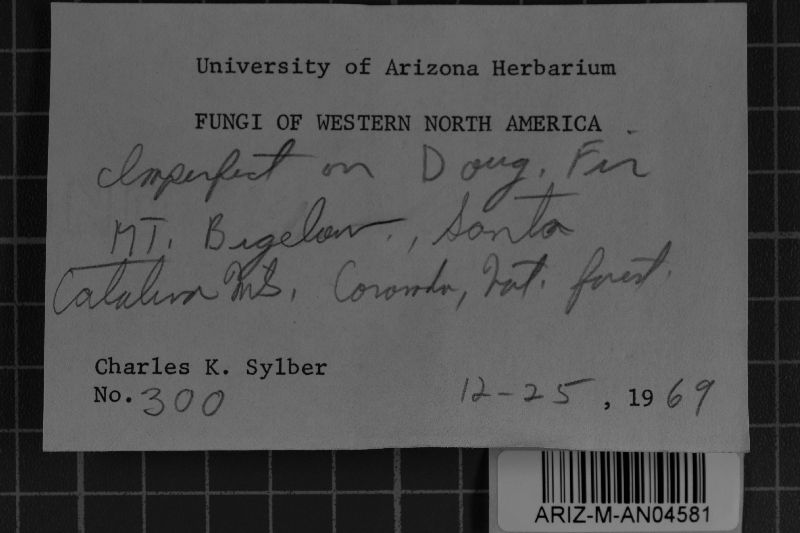 University of Arizona Herbarium
FUNGI OF WESTERN NORTH AMERICA
Imperfect on Doug. Fir
MT. Bigelow., Santa
Catalina Mts. Coronado, Nat. forest.
Charles K. Sylber
No. 300
12-25, 1969
ARIZ-M-AN04581